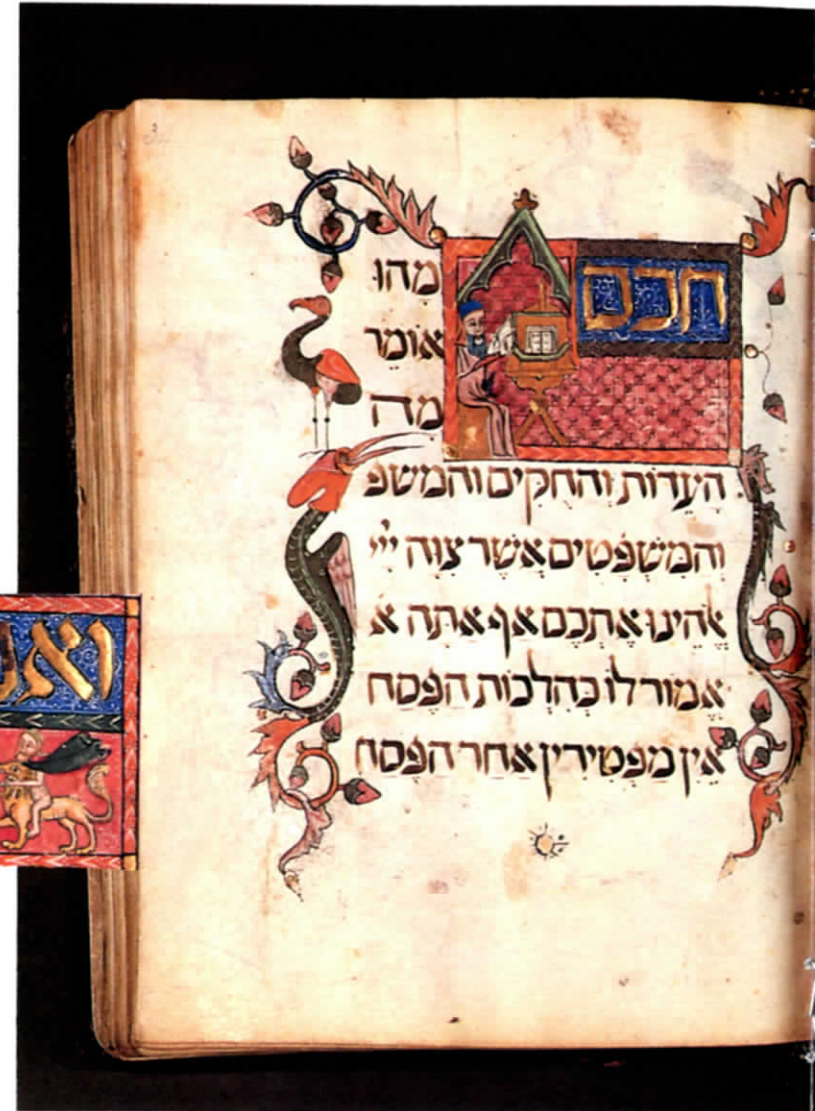 חכם מהו
אומר
מה
העדות והחקים והמשפ
והמשפטים אשר צוה ייי
אלהינו אתכם אף אתה א
אמור לו כהלכות הפסח
אין מפטירין אחר הפסח